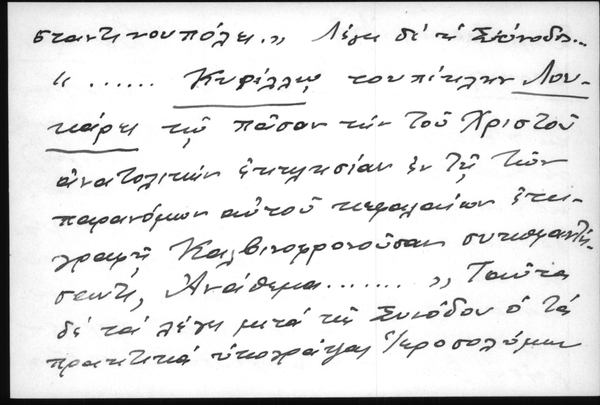 σταντινουπόλει." Λέγει δέ ἡ Σύνοδος...
"...... Κυρίλλῳ τοὐπίκλην Λου-
κάρει τῷ πᾶσαν τήν τοῦ Χριστοῦ
ἀνατολικήν ἐκκλησίαν ἐν τῇ τῶν
παρανόμων αὐτοῦ κεφαλαίων ἐπι-
γραφῇ Καλβινοφρονοῦσαν συκοφαντή-
σαντι, Ἀνάθεμα......." Ταῦτα
δέ τά λέγει μετά τῆς Συνόδου ὁ τά
πρακτικά ὑπογράψας Ἱεροσολύμων